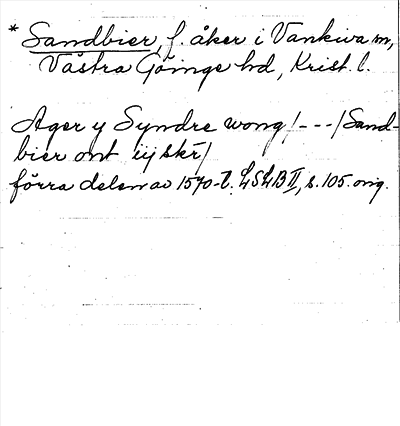 * Sandbier, f. åker i Vankiva sn,
Västra Göinge hd, Krist. l.
Ager y Syndre wong /---/ Sand-
bier ont iij skr/
förra delen av 1570-t. LSLB II, s. 105. orig.